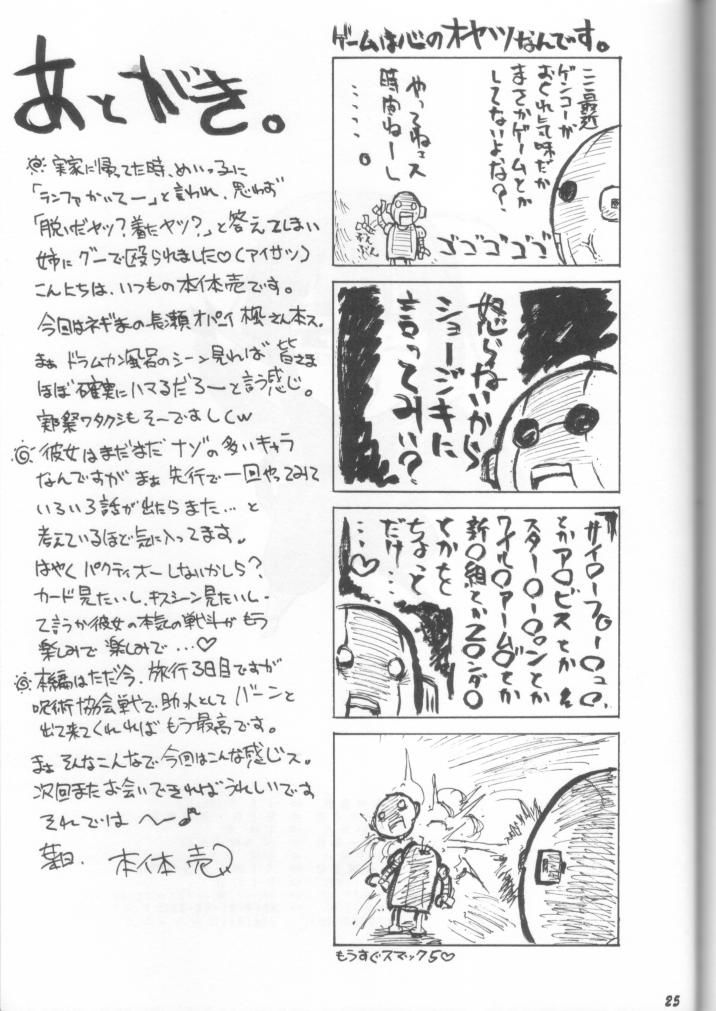 あとがき。
実家に帰ってた時、めいっ子に
「ランファかいてー」と言われ、思わず
「脱いだヤツ?着たヤツ?」と答えてしまい
姉にグーで殴られました♡(アイサツ)
こんにちは、いつもの本体売です。
今回はネギまの長瀬オパイ楓さん本ス。
まぁドラムカン風呂のシーン見れば皆さま
ほぼ確実にハマるだろーと言う感じ。
実際ワタクシもそーですしくw
彼女はまだまだナゾの多いキャラ
なんですがまぁ先行で一回やってみて
いろいろ話が出たらまた…と
考えているほど気に入ってます。
はやくパクティオーしないかしら?
カード見たいし、キスシーン見たいし
て言うか彼女の本気の戦斗がもう
楽しみで楽しみで…♡
本編はただ今、旅行3日目ですが
呪術協会戦で助っ人としてバーンと
出て来てくれればもう最高です。
まぁそんなこんなで今回はこんな感じス。
次回またお会いできればうれしいです
それでは へ〜♪
本体 売
ゲームは心のオヤツなんです。
ここ最近
ゲンコーが
おくれ気味だか
まさかゲームとか
してないよな?
やってねェス
時間ねーし
……。
ゴゴゴゴゴ
怒らないから
ショージキに
言ってみい?
サイ〇ーフ〇ー〇ュ〇、
とかア〇ビスとか
スター〇ー〇ョンとか
ワイル〇アーム〇とか
新〇組とかZ〇ンダ〇
とかをと
ちょっと
だけ…
…♡
もうすぐスマック5♡
25